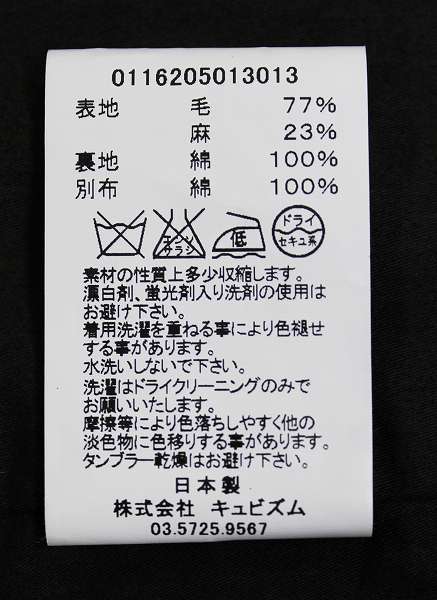 0116205013013
表地 毛 77%
麻 23%
裏地 綿 100%
別布 綿 100%
エンソ
サラシ
低
ドライ
セキユ系
素材の性質上多少収縮します。
漂白剤、蛍光剤入り洗剤の使用は
お避け下さい。
着用洗濯を重ねる事により色褪せ
する事があります。
水洗いしないで下さい。
洗濯はドライクリーニングのみで
お願いいたします。
摩擦等により色落ちしやすく他の
淡色物に色移りする事があります。
タンブラー乾燥はお避け下さい。
日本製
株式会社 キュビズム
03.5725.9567